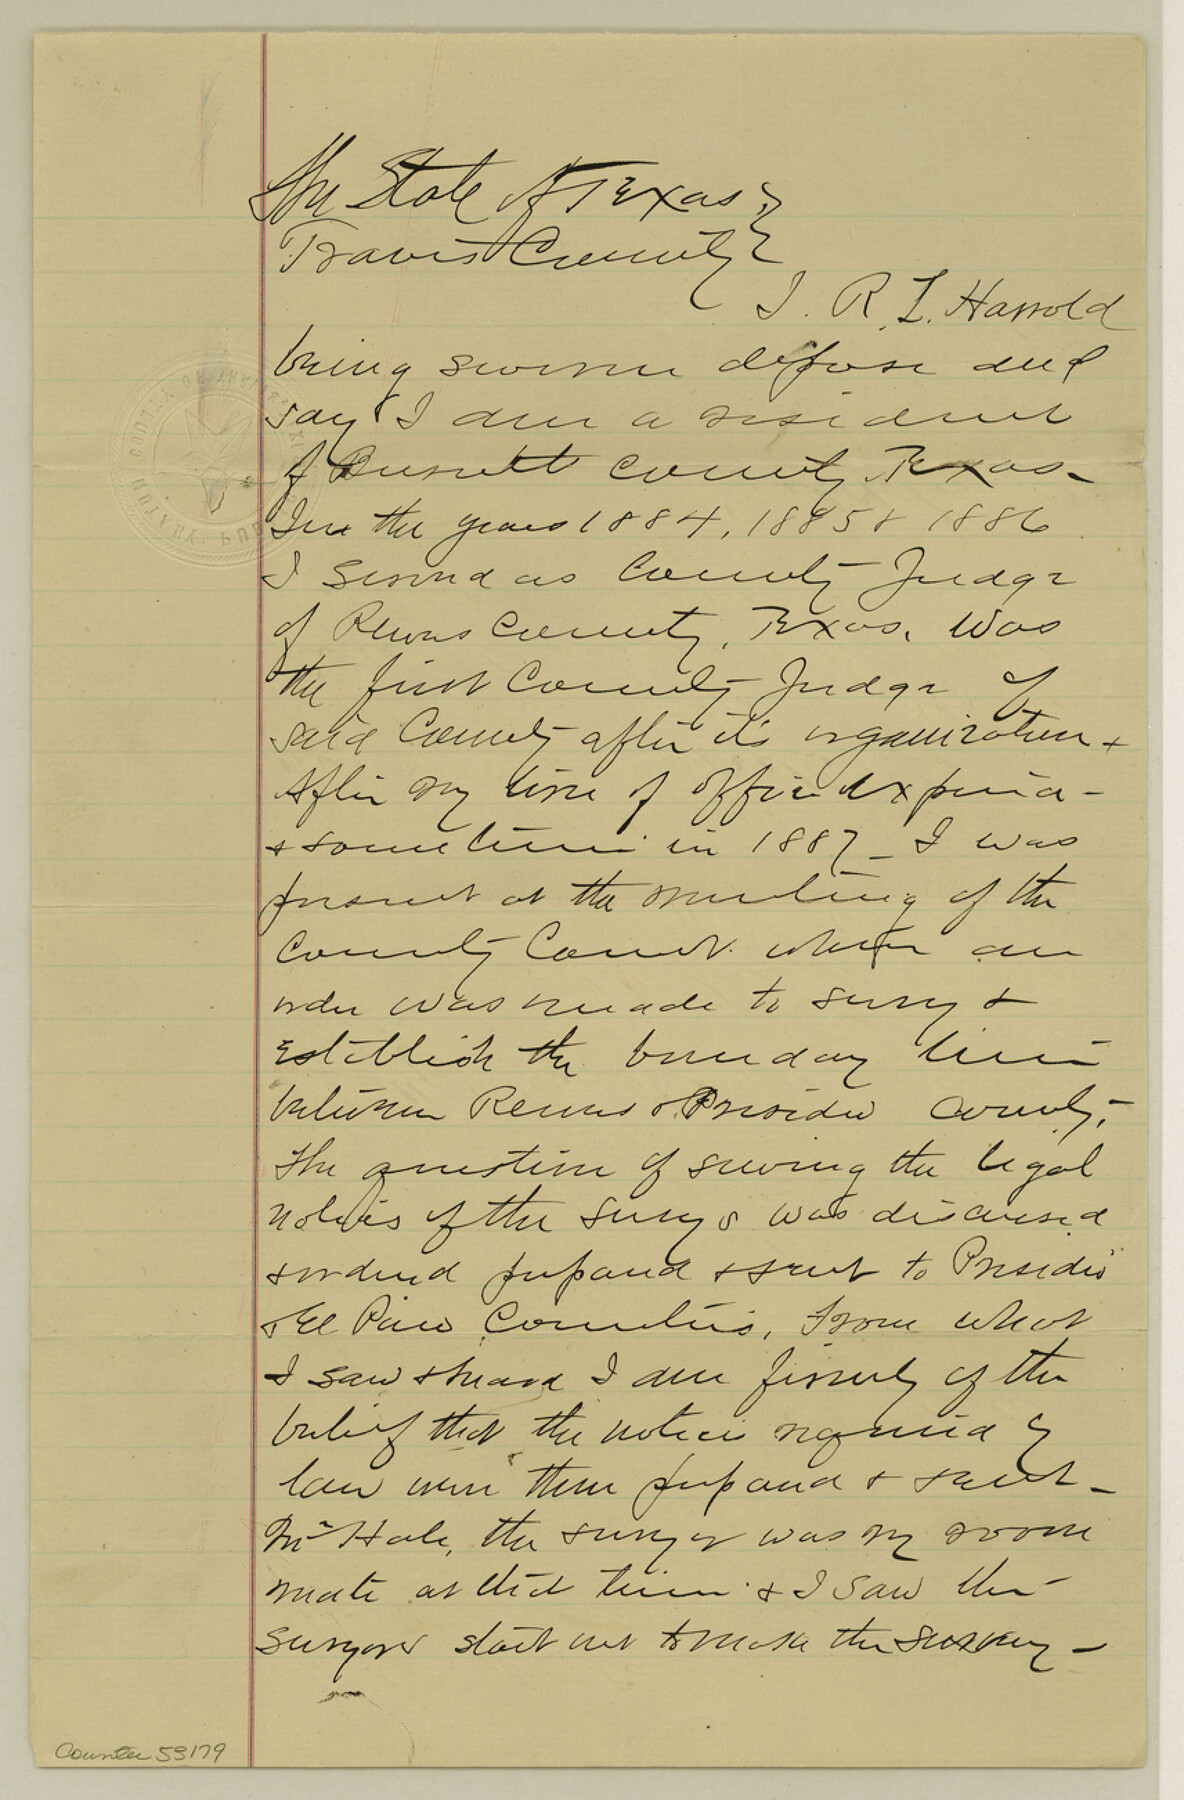 The State of Texas
Travis County
I. R. L. Harrold
being sworn depose and
say I am a resident
of Burnett County Texas-
In the years 1884, 1885 & 1886
I served as County Judge
of Reeves County, Texas. Was
the first County Judge of
said County after its organization &
After my time of office expired -
& sometime in 1887 - I was
present at the meeting of the
County Court when an
order was made to survey &
Establish the boundary line
between Reeves & Presidio County,
the question of serving the legal
notices of the survey was discussed
& ordered prepared & sent to Presidio
& El Paso Counties, From what
I saw & heard I am firmly of the
belief that the notices required by
law were then prepared & sent -
Mr Hale, the surveyor was my room
mate at that time & I saw the
surveyors start out to make the survey -
Counter 53179